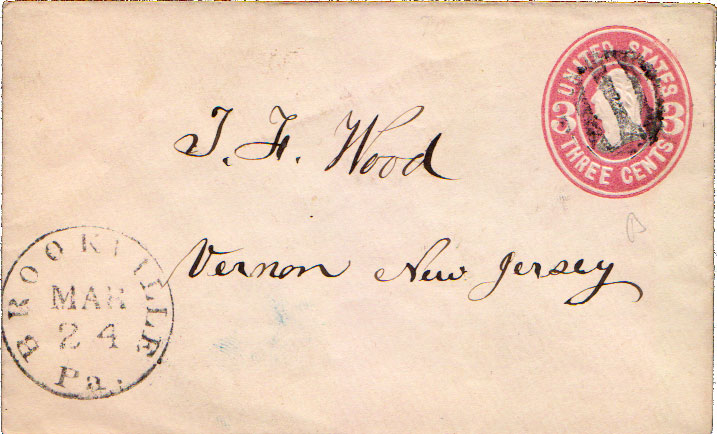 UNITED STATES
3 3
THREE CENTS
T. F. Wood
Vernon New Jersey
BROOKVILLE
MAR
24
Pa.